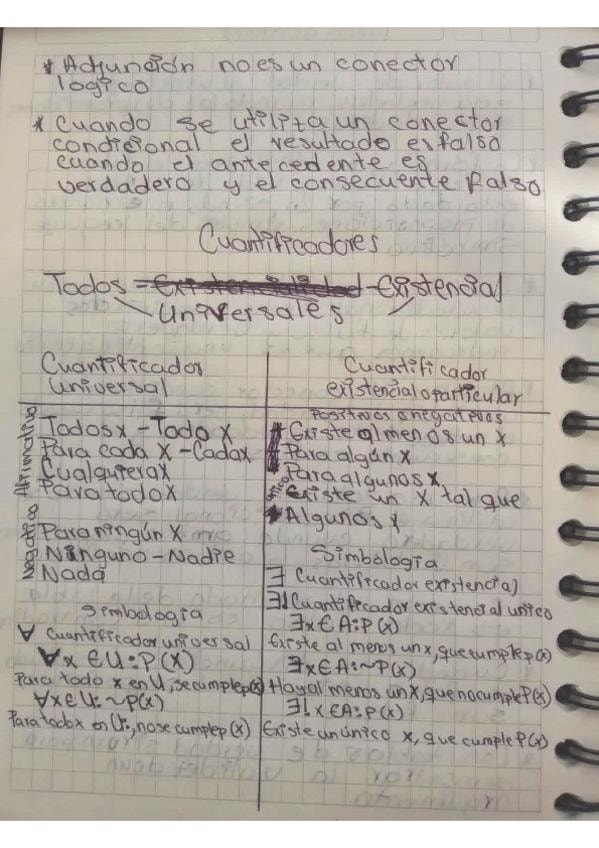 * Adjunción no es un conector
logico
* Cuando se utiliza un conector
condicional el resultado es falso
cuando el antecedente es
verdadero y el consecuente falso
Cuantificadores
Todos = Existencialidad - Existencial
Universales
Cuantificador
universal
Afirmativo
Todos x - Todo x
Para cada x - Cada x
Cualquiera x
Para todo x
Para ningún x
Ninguno - Nadie
Nada
Simbologia
∀ cuantificador universal
∀x ∈ U: P(x)
Para todo x en U, se cumple p(x)
∀x∈U: ~p(x)
Para todo x en U:, no se cumple p(x)
Cuantificador
existencial o particular
Positivos o negativos
* Existe al menos un x
* Para algún x
* Para algunos x
Existe un x tal que
* Algunos x
Simbologia
∃ Cuantificador existencial
∃! Cuantificador existencial unico
∃x ∈ A: P(x)
Existe al menos un x, que cumple p(x)
∃x∈A: ~P(x)
Hay al menos un x, que no cumple P(x)
∃! x∈A: P(x)
Existe un único x, que cumple P(x)